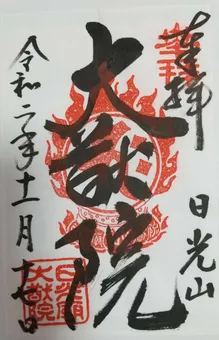 奉拝
日光山
大猷院
令和二年十一月十七日
日光廟
大猷院